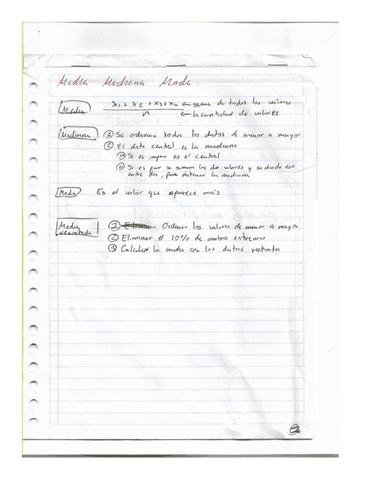 Media Mediana Moda
Media X1 + X2 + X3 + Xn ← suma de todos los valores
n ← cantidad de valores
Mediana ① Se ordenan todos los datos de menor a mayor
② El dato central es la mediana
Si es impar es el central
Si es par se suman los dos valores y se divide
entre dos, para obtener la mediana
Moda Es el valor que aparece más
Media ① Ordenar los valores de menor a mayor
recortada ② Eliminar el 10% de ambos extremos
③ Calcular la media con los datos restantes